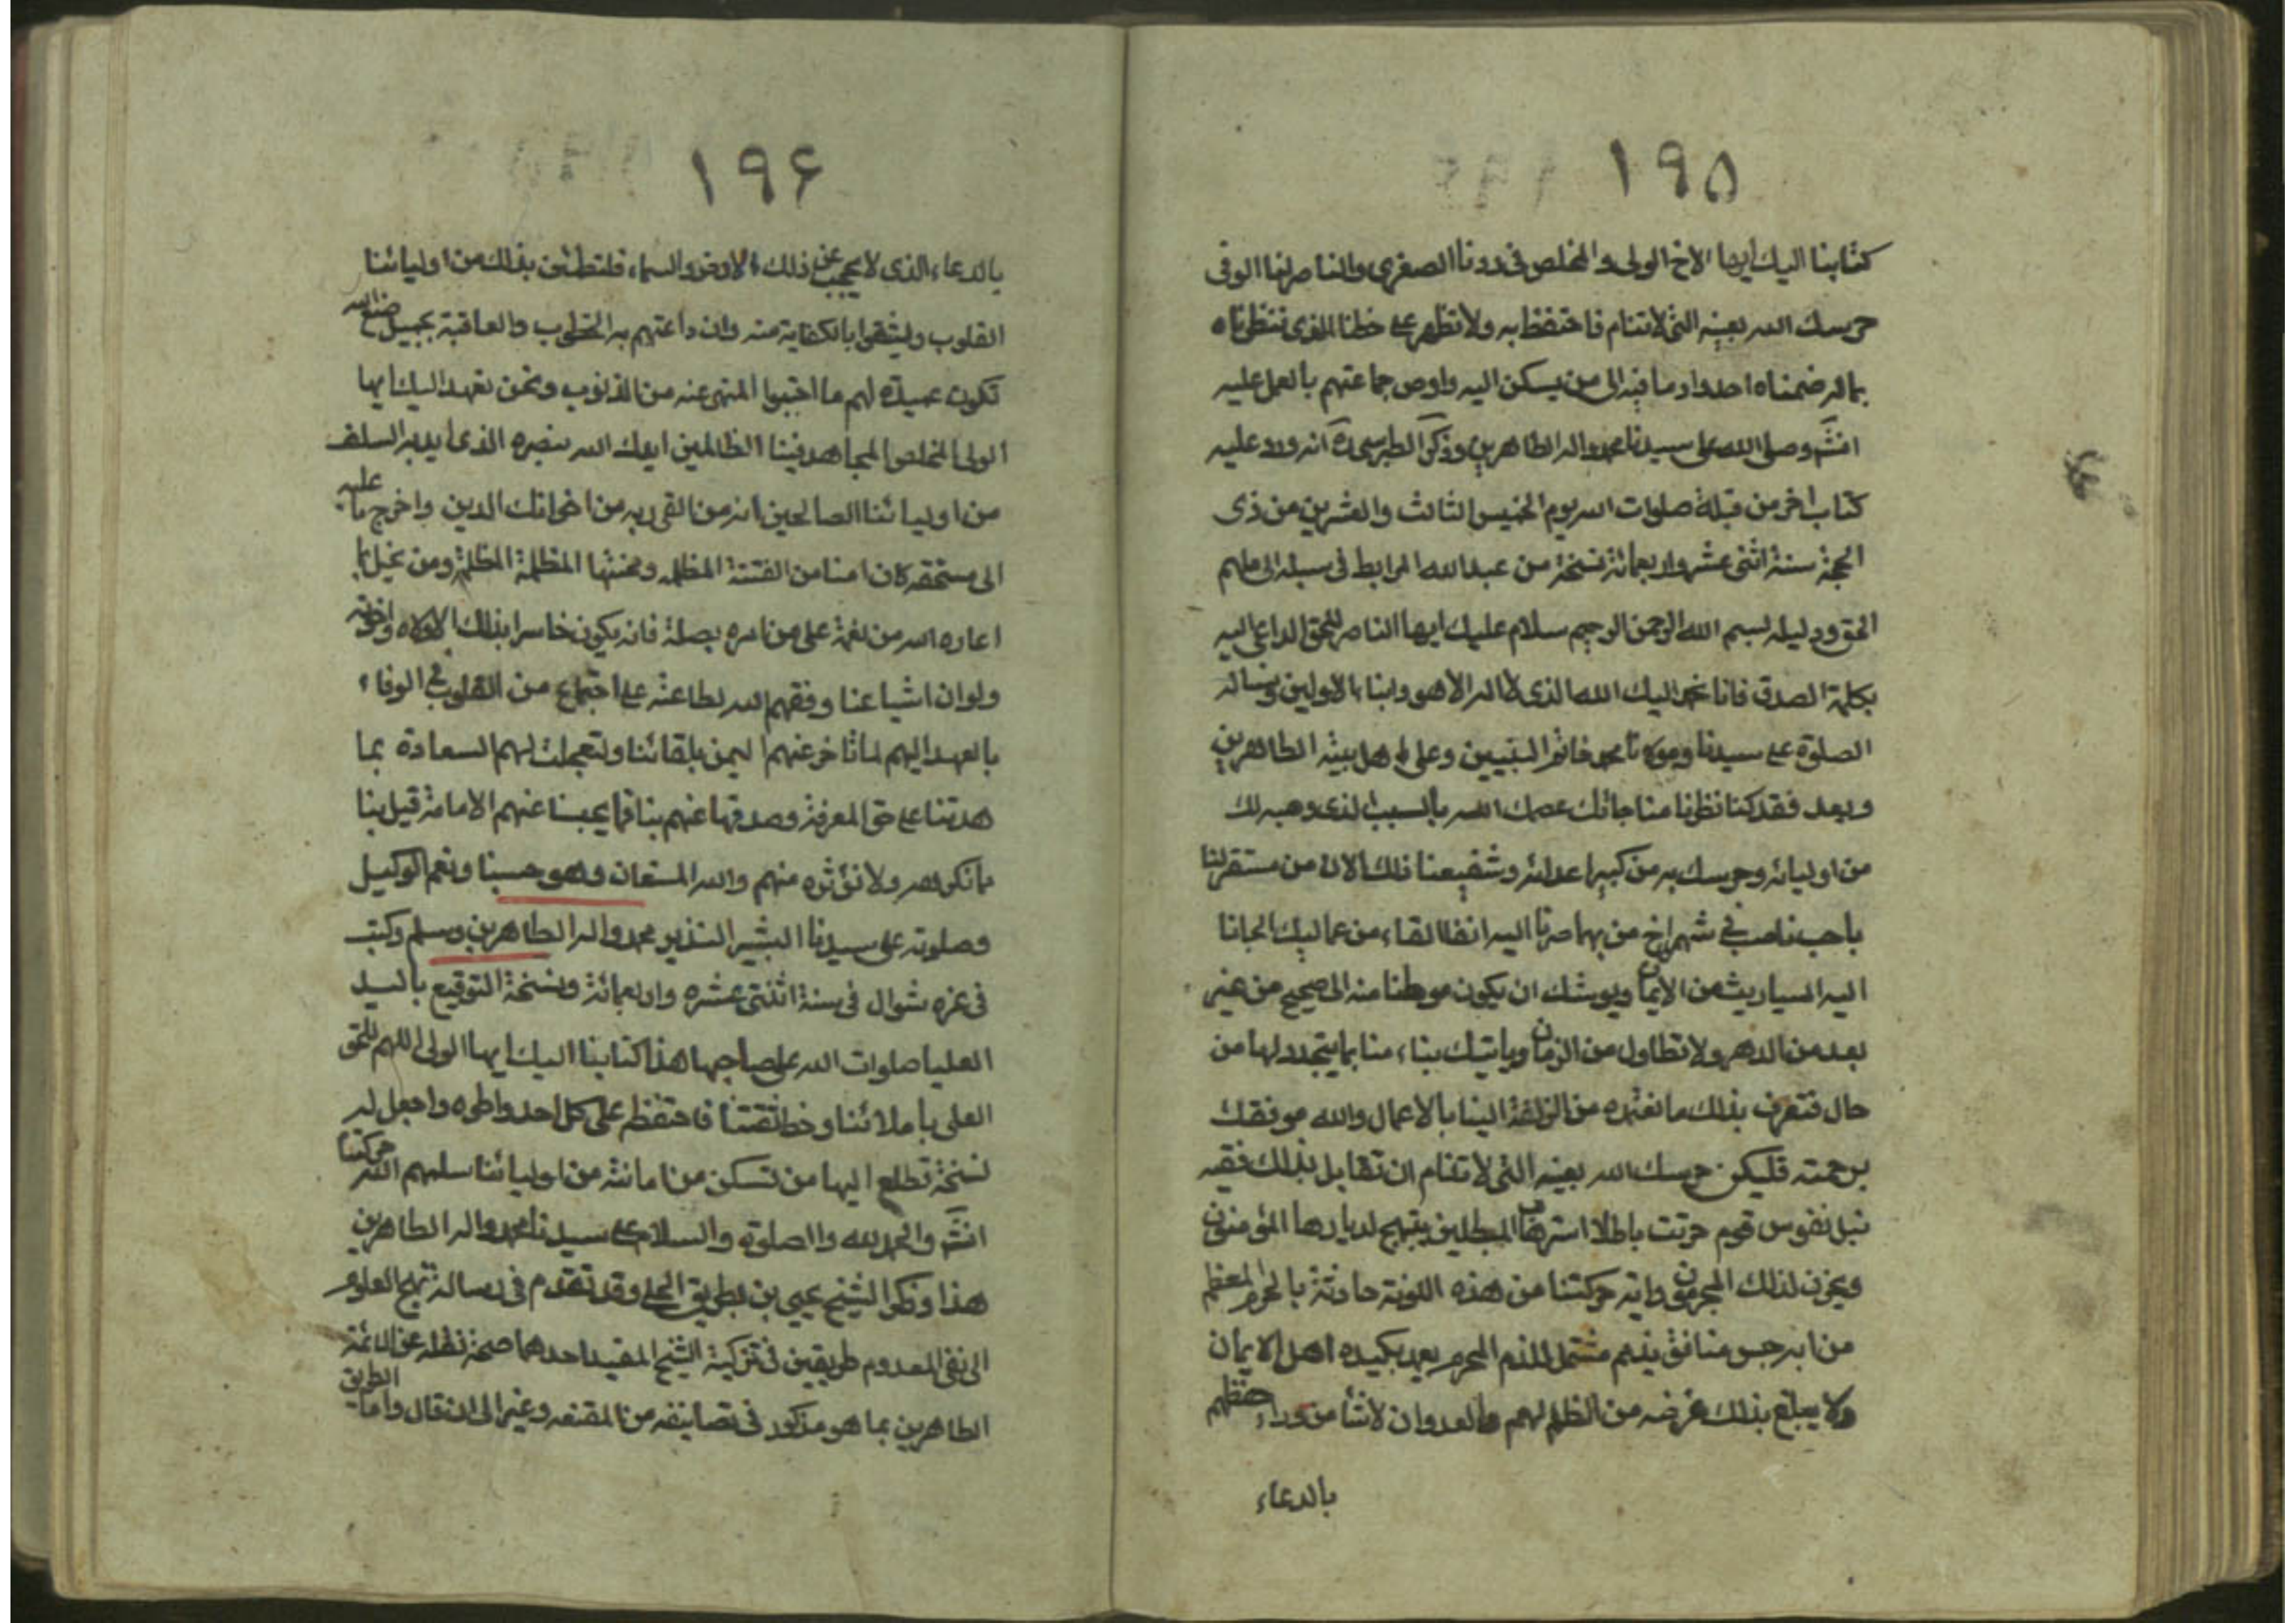 ۱۹۵
كتابنا اليك ايها الاخ الولى والمخلص فى ودنا الصفى والناصر لنا الوفى
حرسك الله بعينه التى لاتنام فاحتفظ به ولا تظهر على خطنا الذى سطرناه
بماله ضمناه احدا واد ما فيه الى من يسكن اليه واوص جماعتهم بالعمل عليه
انشَ وصلى الله على سيدنا محمد واله الطاهرين وذكر الطبرسى ره انه ورد عليه
كتاب اخر من قبله صلوات الله يوم الخميس الثالث والعشرين من ذى
الحجة سنة اثنى عشر واربعمائة نسخة من عبد الله المرابط فى سبيله الى ملهم
الحق ودليله بسم الله الرحمن الرحيم سلام عليك ايها الناصر للحق الداعى اليه
بكلمة الصدق فانا نحمد اليك الله الذى لا اله الا هو وابناء الاولين ونساله
الصلوة على سيدنا ومولانا محمد خاتم النبيين وعلى اهل بيته الطاهرين
وبعد فقد كنا نظرنا مناجاتك عصمك الله بالسبب الذى وهبه لك
من اوليائه وحرسك به من كيد اعدائه وشفيعنا ذلك الان من مستقر لنا
ناصب فى شمراخ من بهما صرنا اليه انفا القاء من عماليك الجانا
اليه السباريث من الايمان ويوشك ان يكون موطنا منه الى صحيح من غير
بعد من الدهر ولا تطاول من الزمان وياتيك بناء منا بما يتجدد لها من
حال فتعرف بذلك ما تعتمده من الزلفة الينا بالاعمال والله موفقك
برحمته فليكن حرسك الله بعينه التى لاتنام ان تقابل بذلك فقيه
نبل نفوس قوم حرثت باطلا استرهاب المبطلين يبتهج لديارها المؤمنون
ويحزن لذلك المجرمون واية حركتنا من هذه اللوثة حادثة بالحرم المعظم
من ابن رجس منافق يذمم مشتمل للذم المحرم يعد بكيده اهل الايمان
ولا يبلغ بذلك غرضه من الظلم لهم والعدوان لاننا من وراء حفظهم
بالدعاء
۱۹۶
بالدعاء الذى لا يحجب عن ذلك الارض والسماء فلتطمئن بذلك من اوليائنا
القلوب وليثقوا بالكفاية منه وان راعتهم به الخطوب والعاقبة بجميل صنع الله
تكون حميدة لهم ما اجتنبوا المنهى عنه من الذنوب ونحن نعهد اليك ايها
الولى المخلص المجاهد فينا الظالمين ايدك الله بنصره الذى ايد به السلف
من اوليائنا الصالحين انه من اتقى ربه من اخوانك الدين واخرج ما عليه
الى مستحقه كان امنا من الفتنة المظله ومحنتها المظلمة المظلة ومن بخل بما
اعاره الله من نعمة على من امره بصلة فانه يكون خاسرا بذلك لاولاه واخرته
ولو ان اشياعنا وفقهم الله لطاعته على اجتماع من القلوب فى الوفاء
بالعهد اليهم لما تاخر عنهم اليمن بلقائنا ولتعجلت لهم السعادة بما
هدتنا على حق المعرفة وصدقها عنهم بنا فما يحبسنا عنهم الامامة قيل بنا
مانكرهه ولا نؤثره منهم والله المستعان وهو حسبنا ونعم الوكيل
وصلوته على سيدنا البشير النذير محمد واله الطاهرين وسلم وكتب
فى غره شوال فى سنة اثنتى عشره واربعمائة ونسخة التوقيع باليد
العليا صلوات الله على صاحبها هذا كتابنا اليك ايها الولى اللهم للحق
العلى باملائنا وخط ثقتنا فاحتفظ على كل احد واطوه واجعل له
نسخة تطلع اليها من تسكن من امانته من اوليائنا سلمهم الله حركتنا
انشَ والحمد لله والصلوة والسلام على سيدنا محمد واله الطاهرين
هذا وذكر الشيخ يحيى بن بطريق الحلى وقد تقدم فى رسالة نهج العلوم
الى نفى المعدوم طريقين فى تزكية الشيخ المفيد احدهما صحة نقله عن الائمة
الطاهرين بما هو مذكور فى تصانيفه من المقنعه وغيرها الى ان قال واما الطريق